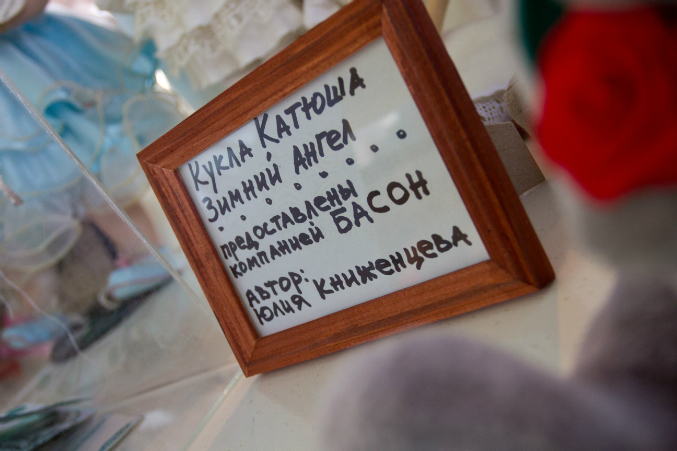 Кукла Катюша
Зимний Ангел
. . . . . . . . .
предоставлены
компанией БАСОН
Автор:
Юлия Книженцева